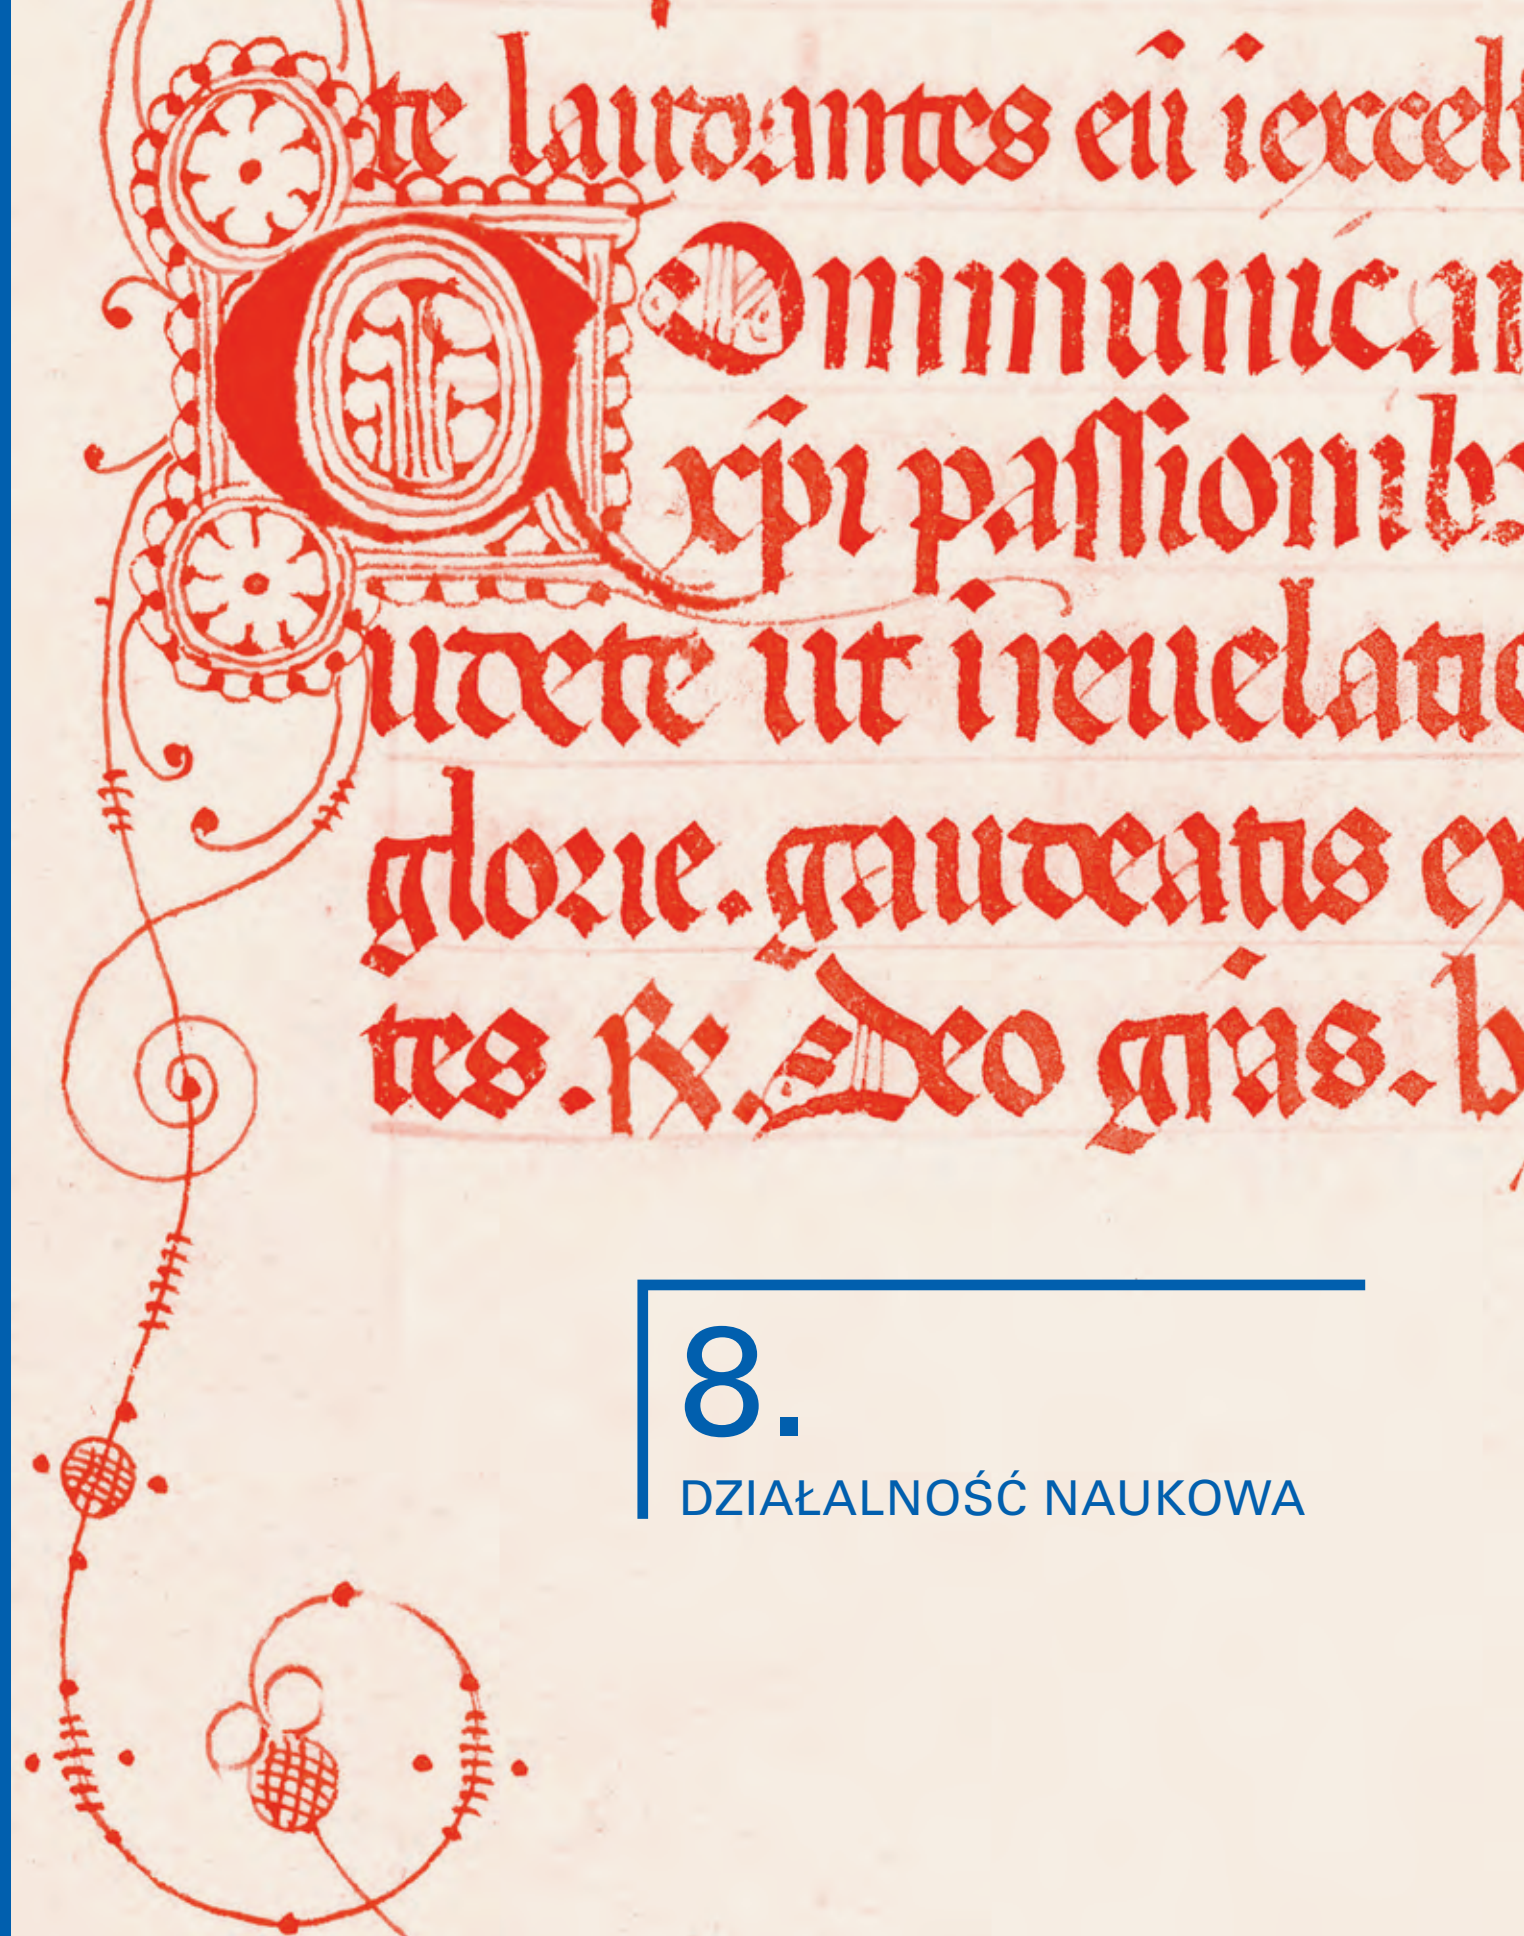 te laudantes eū ī excel
Communic
xp̄i passionib
udete ut ī reuelatio
glorie. gaudeatis ex
tes. ℟. Deo grās. b
8.
DZIAŁALNOŚĆ NAUKOWA